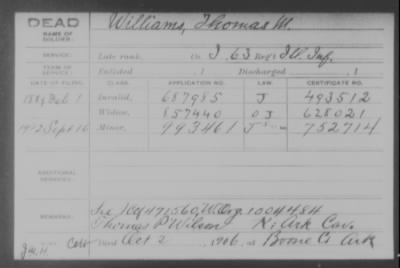 DEAD
NAME OF SOLDIER:
Williams, Thomas M.
SERVICE:
Late rank, Co. I, 63 Reg't Ill. Inf.
TERM OF SERVICE:
Enlisted , 1 Discharged , 1
DATE OF FILING. CLASS. APPLICATION NO. LAW. CERTIFICATE NO.
Feb 1 Invalid, 687985 J 493512
Widow, 857440 O J 628021
1912 Sept 16 Minor, 993461 J 752714
ADDITIONAL SERVICES:
REMARKS:
See 1004484
Thomas P Wilson K 1 Ark Cav.
Died Oct 2, 1906, at Boone Co Ark